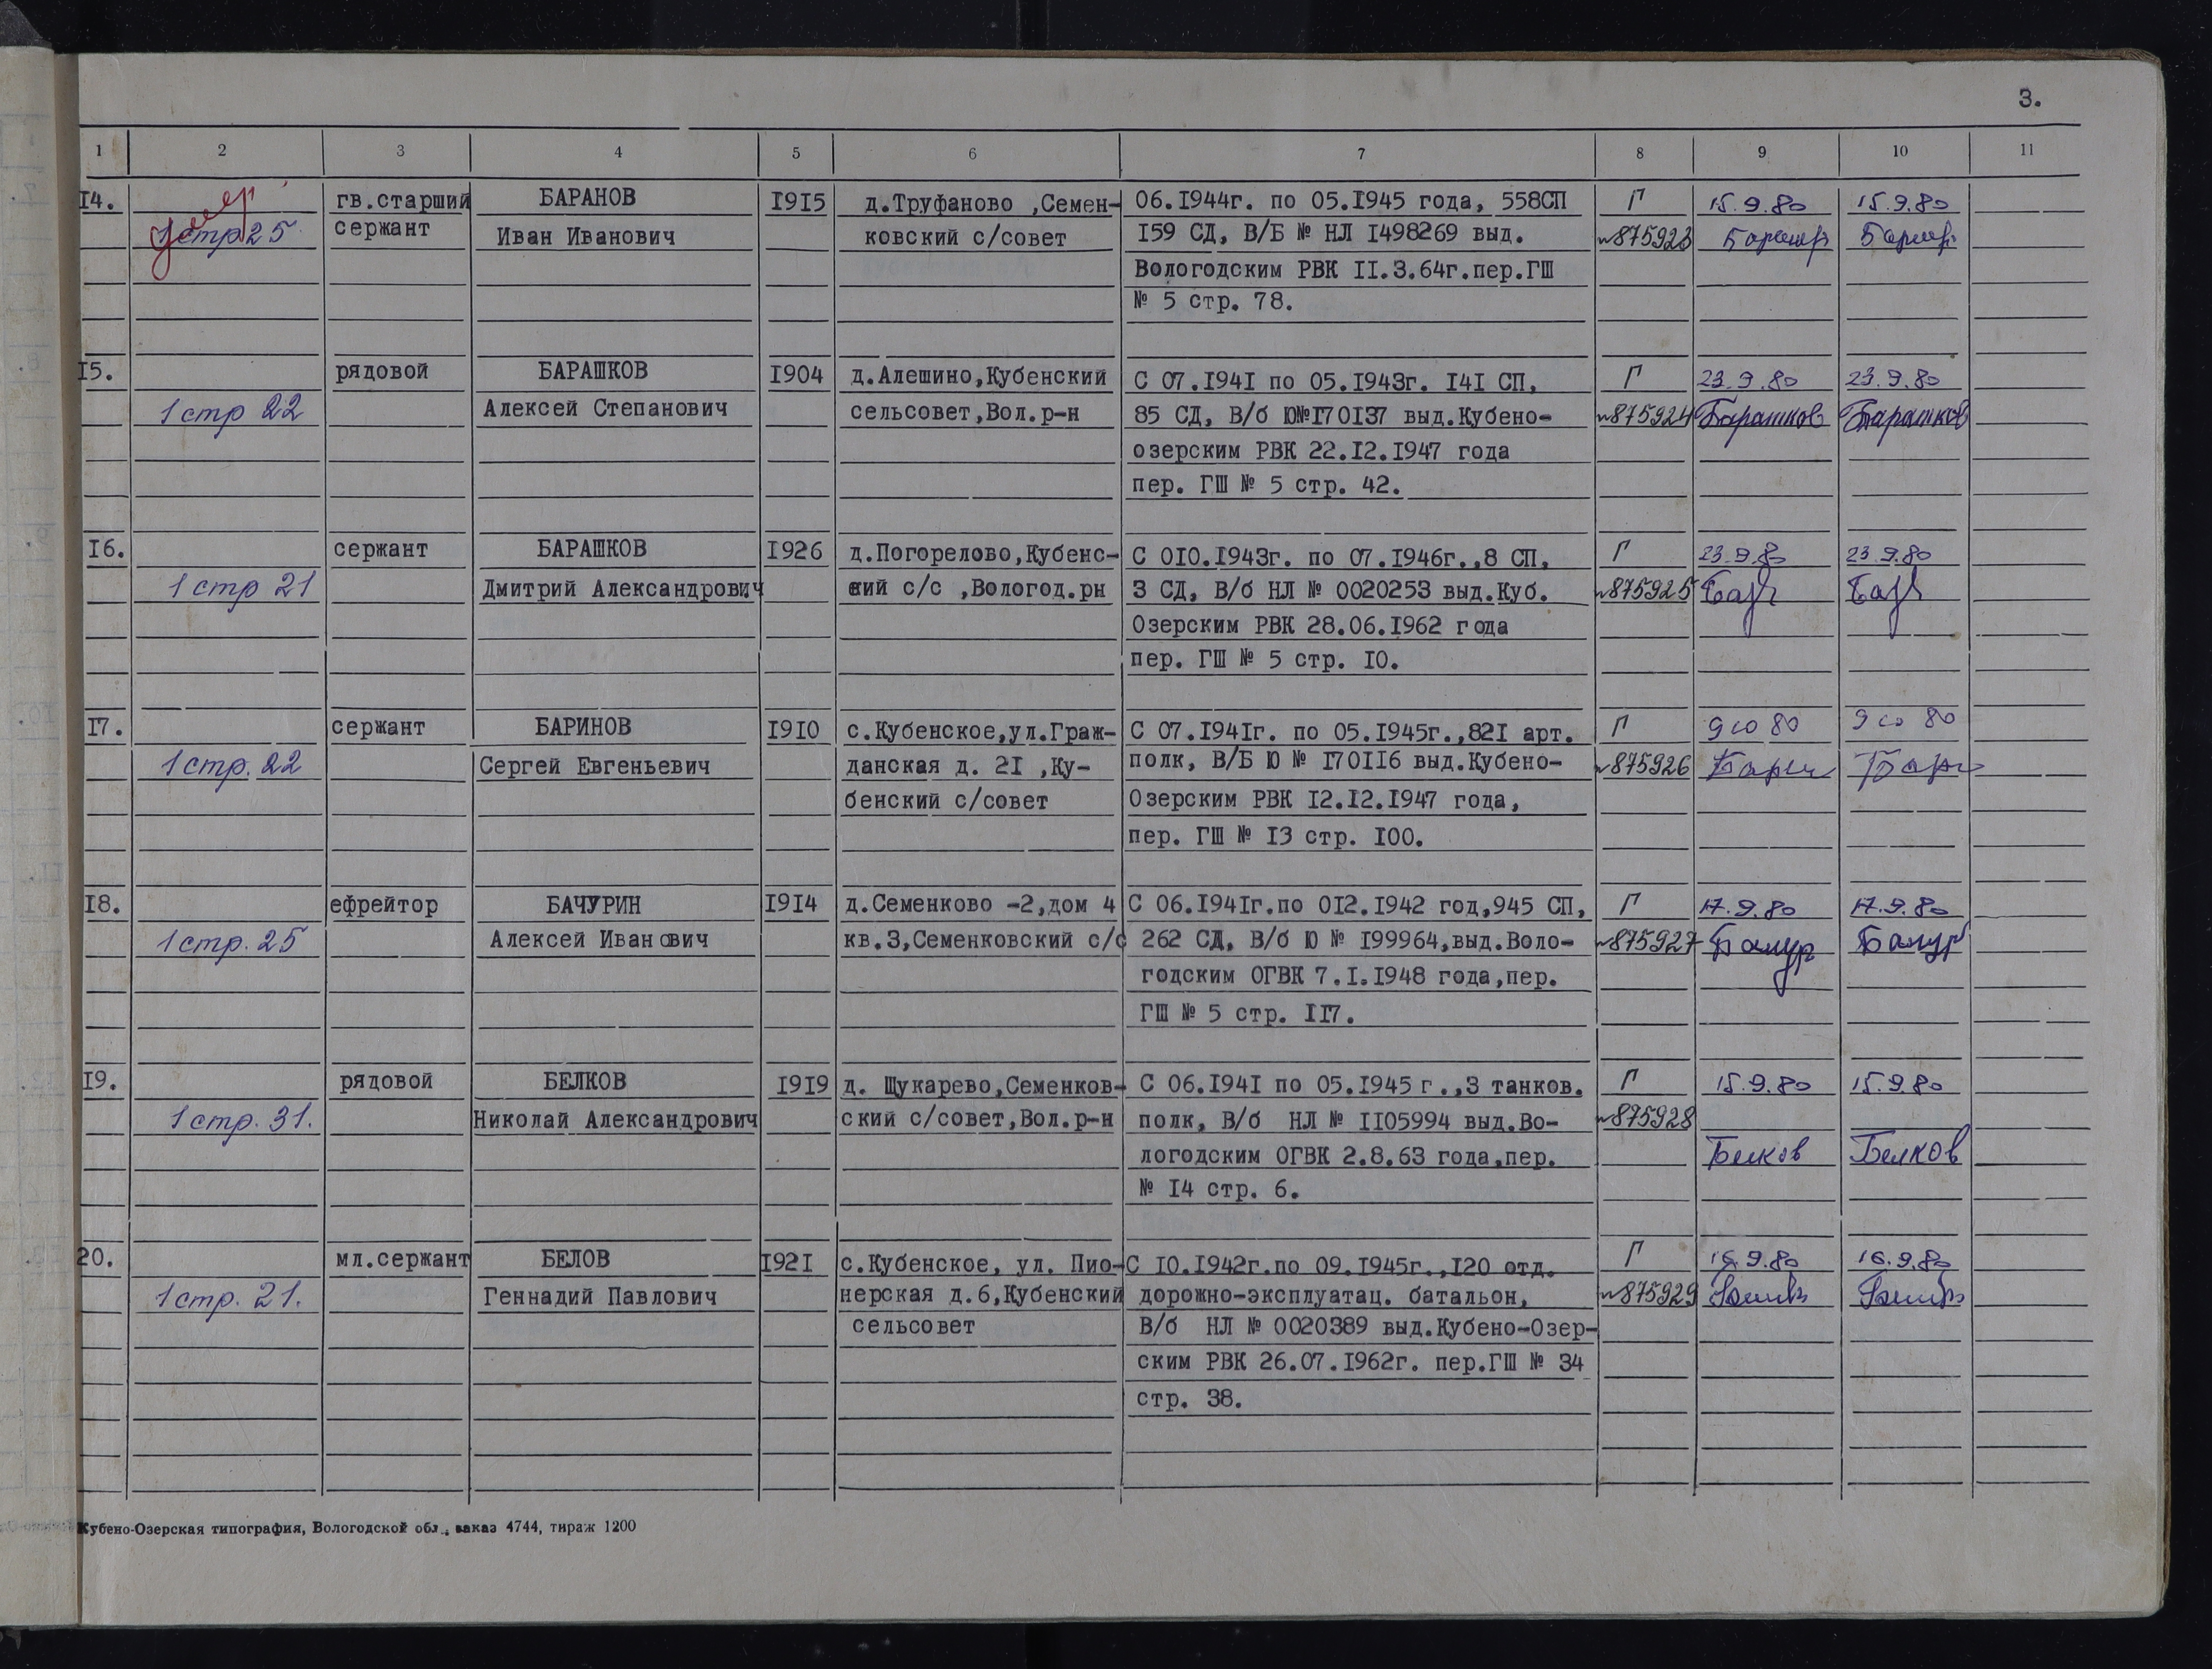 3.
1 2 3 4 5 6 7 8 9 10 11
I4. гв.старший БАРАНОВ I9I5 д.Труфаново ,Семен- 06.I944г. по 05.I945 года, 558СП Г 15.9.80 15.9.80
умер
1 стр 25 сержант Иван Иванович ковский с/совет I59 СД, В/Б № НЛ I498269 выд. №875923
Вологодским РВК II.3.64г.пер.ГШ
№ 5 стр. 78.
I5. рядовой БАРАШКОВ I904 д.Алешино,Кубенский С 07.I94I по 05.I943г. I4I СП, Г 23.9.80 23.9.80
1 стр 22 Алексей Степанович сельсовет,Вол.р-н 85 СД, В/б Ю№I70I37 выд.Кубено- №875924 Барашков Барашков
озерским РВК 22.I2.I947 года
пер. ГШ № 5 стр. 42.
I6. сержант БАРАШКОВ I926 д.Погорелово,Кубенс- С 0I0.I943г. по 07.I946г.,8 СП, Г 23.9.80 23.9.80
1 стр 21 Дмитрий Александрович кий с/с ,Вологод.рн 3 СД, В/б НЛ № 0020253 выд.Куб. №875925
Озерским РВК 28.06.I962 года
пер. ГШ № 5 стр. I0.
I7. сержант БАРИНОВ I9I0 с.Кубенское,ул.Граж- С 07.I94Iг. по 05.I945г.,82I арт. Г 9 10 80 9 10 80
1 стр. 22 Сергей Евгеньевич данская д. 2I ,Ку- полк, В/Б Ю № I70II6 выд.Кубено- №875926
бенский с/совет Озерским РВК I2.I2.I947 года,
пер. ГШ № I3 стр. I00.
I8. ефрейтор БАЧУРИН I9I4 д.Семенково -2,дом 4 С 06.I94Iг.по 0I2.I942 год,945 СП, Г 17.9.80 17.9.80
1 стр. 25 Алексей Иванович кв.3,Семенковский с/с 262 СД, В/б Ю № I99964,выд.Воло- №875927 Бачур Бачур
годским ОГВК 7.I.I948 года,пер.
ГШ № 5 стр. II7.
I9. рядовой БЕЛКОВ I9I9 д. Щукарево,Семенков- С 06.I94I по 05.I945 г.,3 танков. Г 15.9.80 15.9.80
1 стр. 31. Николай Александрович ский с/совет,Вол.р-н полк, В/б НЛ № II05994 выд.Во- №875928
логодским ОГВК 2.8.63 года,пер. Белков Белков
№ I4 стр. 6.
20. мл.сержант БЕЛОВ I92I с.Кубенское, ул. Пио- С I0.I942г.по 09.I945г.,I20 отд. Г 16.9.80 16.9.80
1 стр. 21. Геннадий Павлович нерская д.6,Кубенский дорожно-эксплуатац. батальон, №875929
сельсовет В/б НЛ № 0020389 выд.Кубено-Озер-
ским РВК 26.07.I962г. пер.ГШ № 34
стр. 38.
Кубено-Озерская типография, Вологодской обл., заказ 4744, тираж 1200